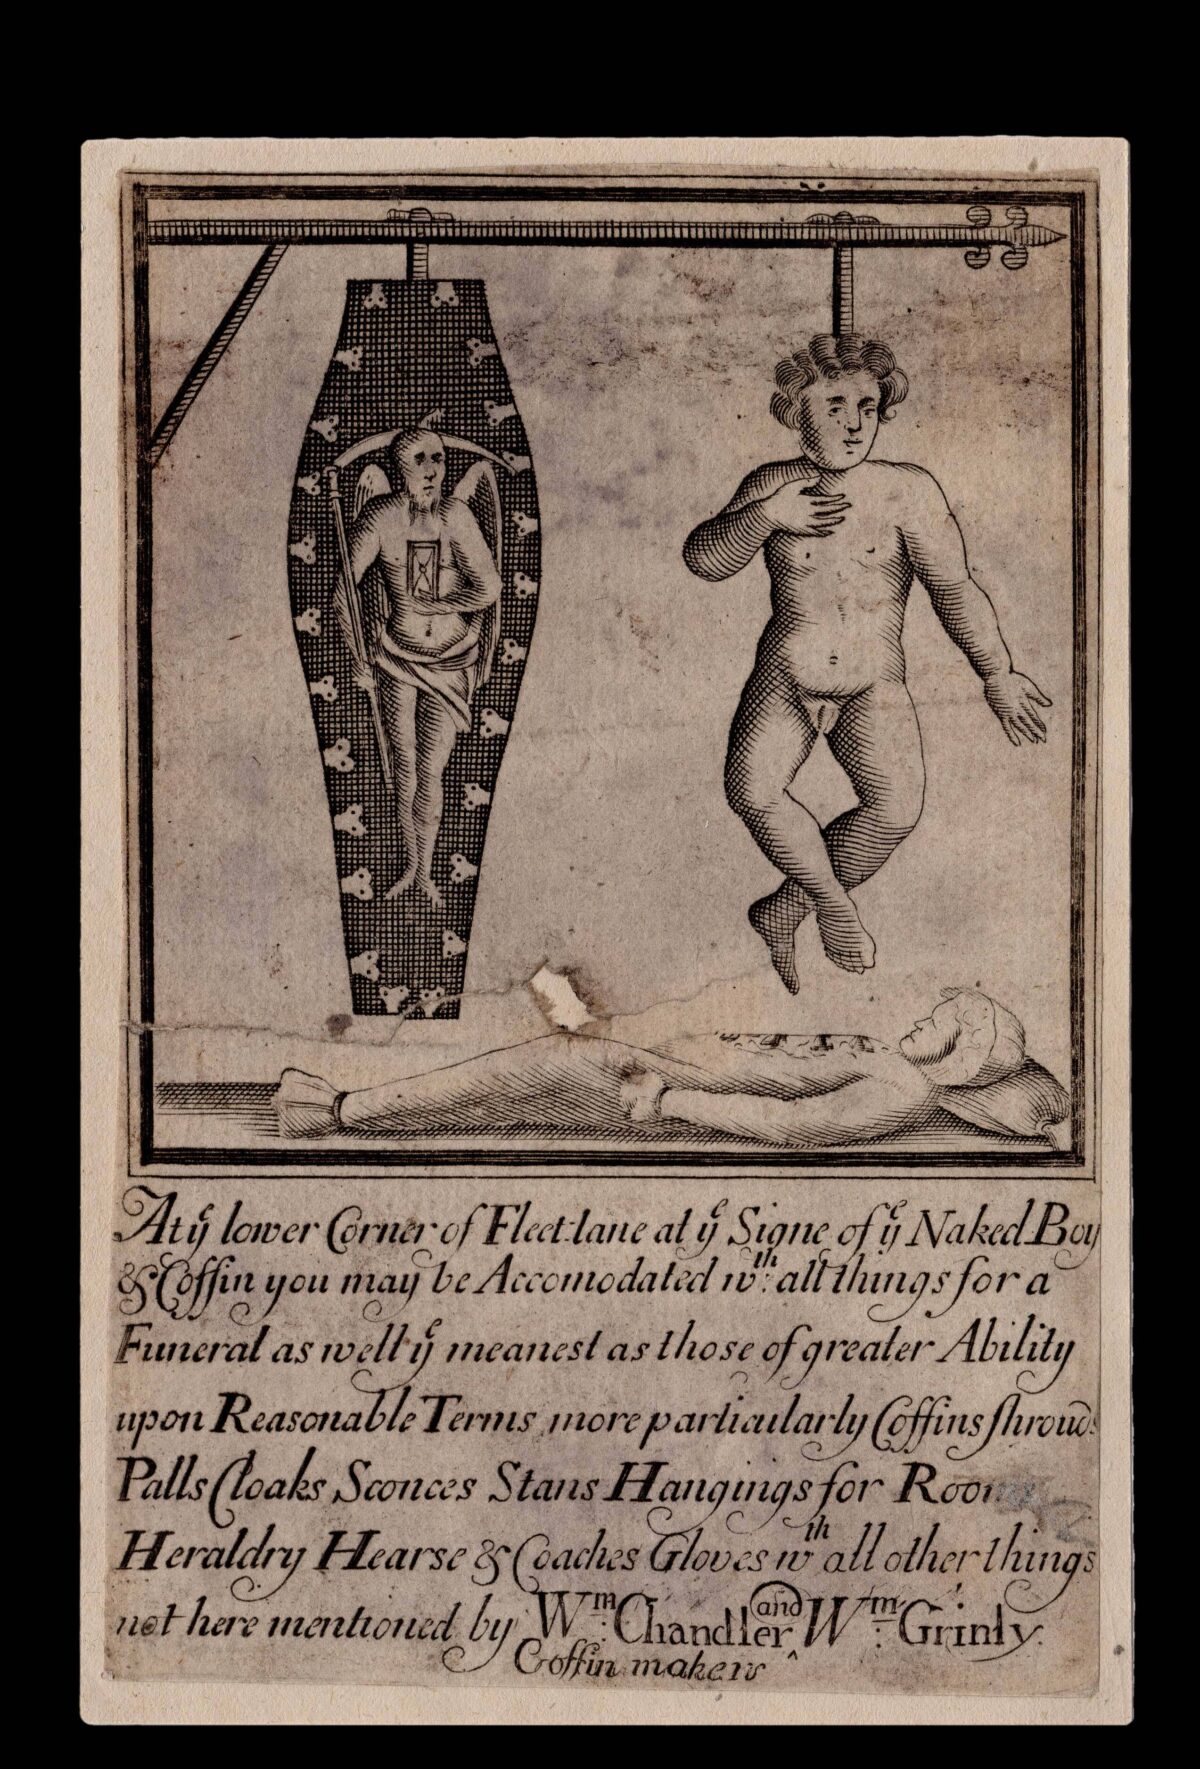 At yͤ lower Corner of Fleet:lane at yͤ Signe of yͤ Naked Boy
& Coffin you may be Accomodated wᵗʰ: all things for a
Funeral as well yͤ meanest as those of greater Ability
upon Reasonable Terms more particularly Coffins shrouds
Palls Cloaks Sconces Stans Hangings for
Heraldry Hearse & Coaches Gloves wᵗʰ all other things
not here mentioned by Wᵐ: Chandler and Wᵐ: Grinly.
Coffin makers